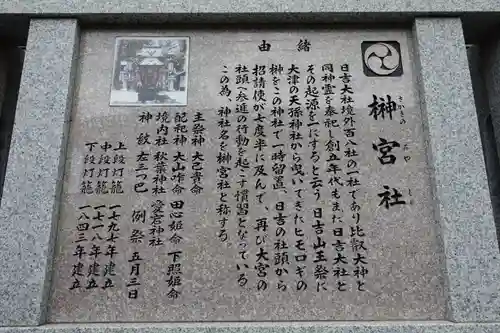 榊宮社
さかきのみやしゃ
緒由
日吉大社境外百八社の一社であり比叡大神と
同神霊を奉祀し創立年代もまた日吉大社と
その起源を一にすると云う 日吉山王祭に
大津の天孫神社から曳いてきたヒモロギの
榊をこの神社で一時留置、日吉の社頭から
招請使が七度半に及んで、再び大宮の
社頭へ参進の行動を起こす慣習となっている
この為、神社名を榊宮社と称する。
主祭神 大己貴命 田心姫命 下照姫命
配祀神 大山咋命
境内社 秋葉神社 愛宕神社
神紋 左三つ巴 例祭 五月三日
上段灯籠 一七九七年建立
中段灯籠 一七一八年建立
下段灯籠 一八四三年建立